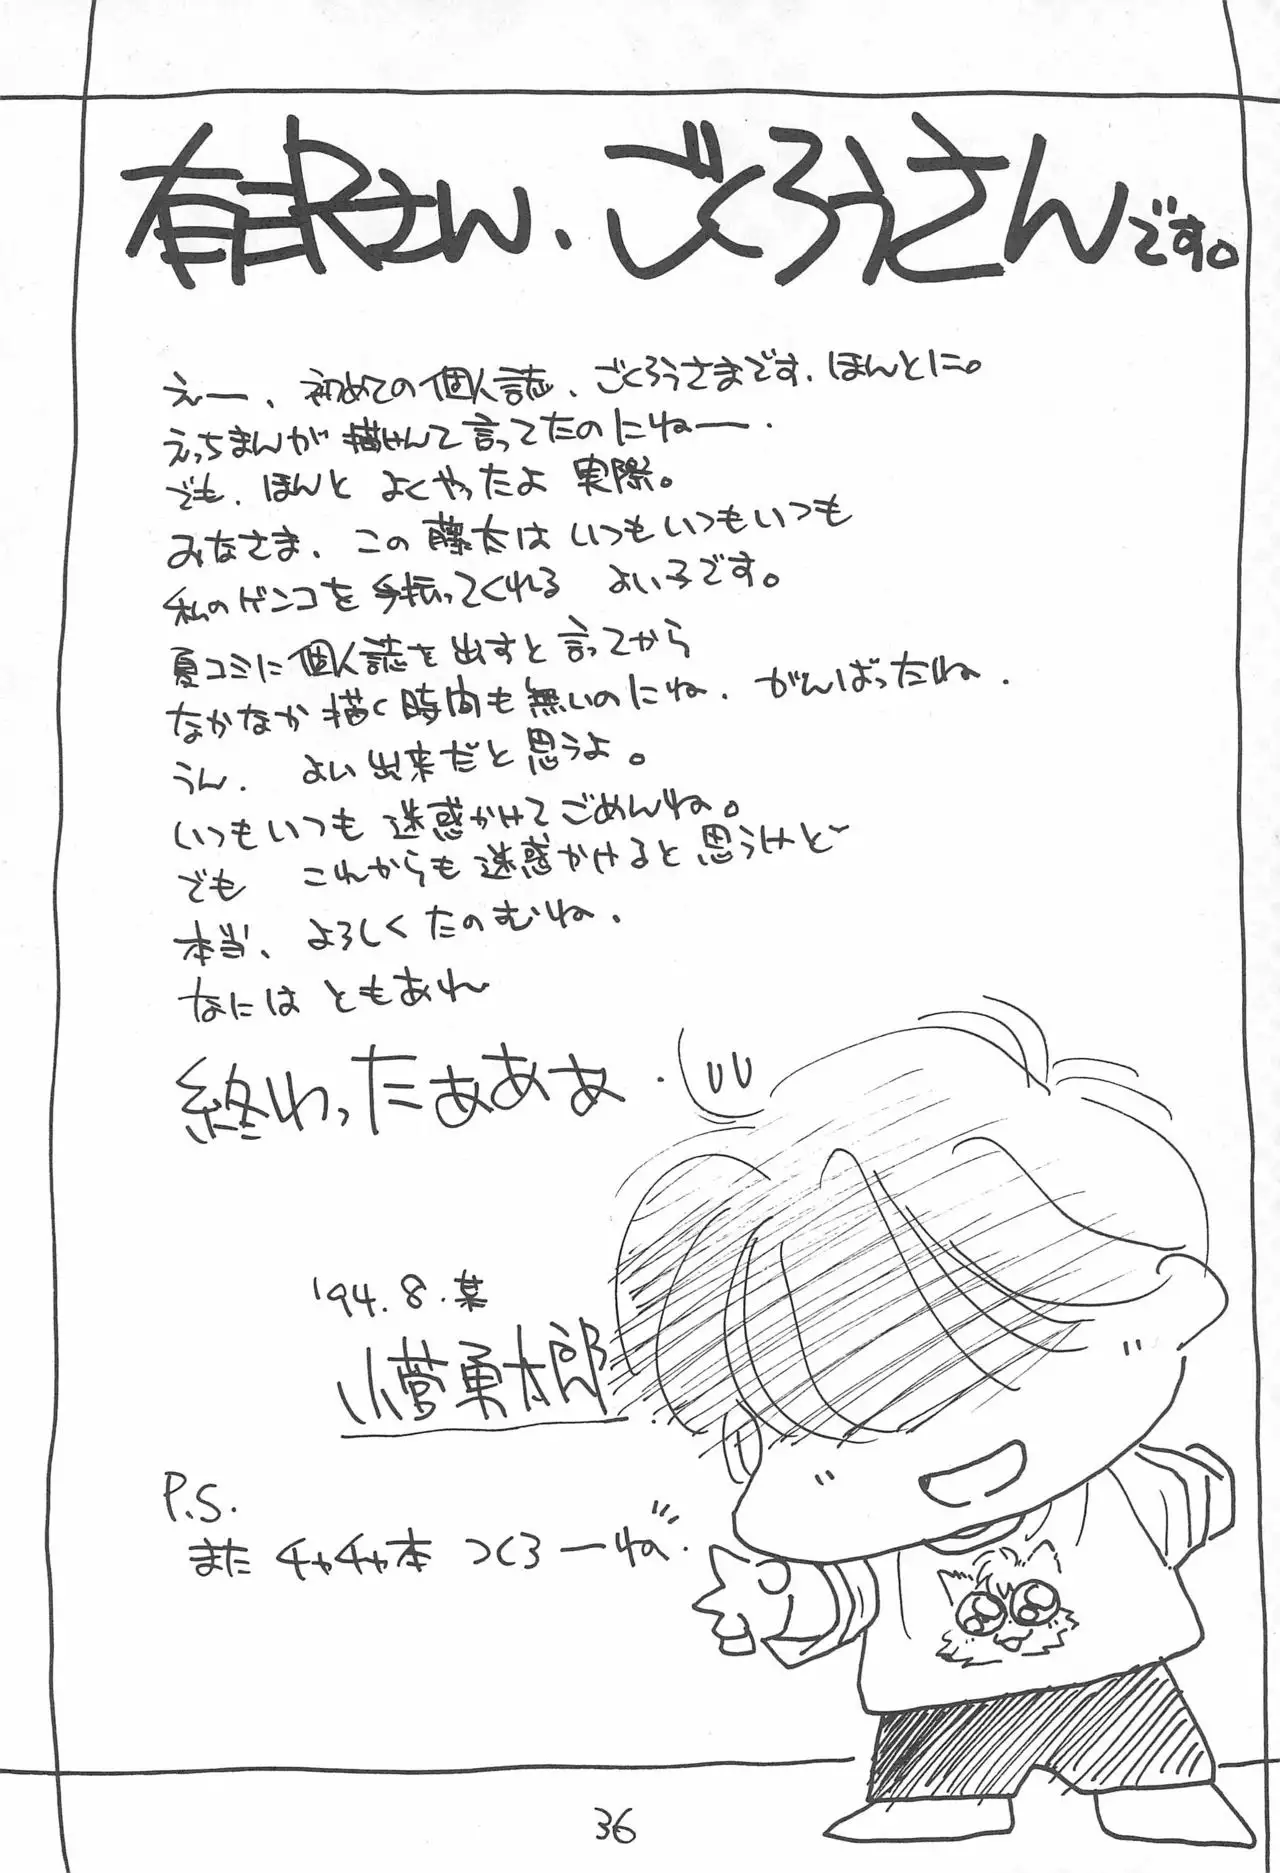 有沢さん、ごくろうさんです。
えー、初めての個人誌、ごくろうさまです、ほんとに。
えっちまんが描けんて言ってたのにねー、
でも、ほんと よくやったよ 実際。
みなさま、この藤太は いつもいつもいつも
私のゲンコを手伝ってくれる よい子です。
夏コミに個人誌を出すと言ってから
なかなか描く時間も無いのにね、がんばったね、
うん、よい出来だと思うよ。
いつもいつも迷惑かけてごめんね。
でも これからも迷惑かけると思うけど
本当、よろしくたのむね、
なにはともあれ
終わったぁあぁ、
'94.8.某
小菅勇太郎
P.S.
また チャチャ本 つくろーね"、
36